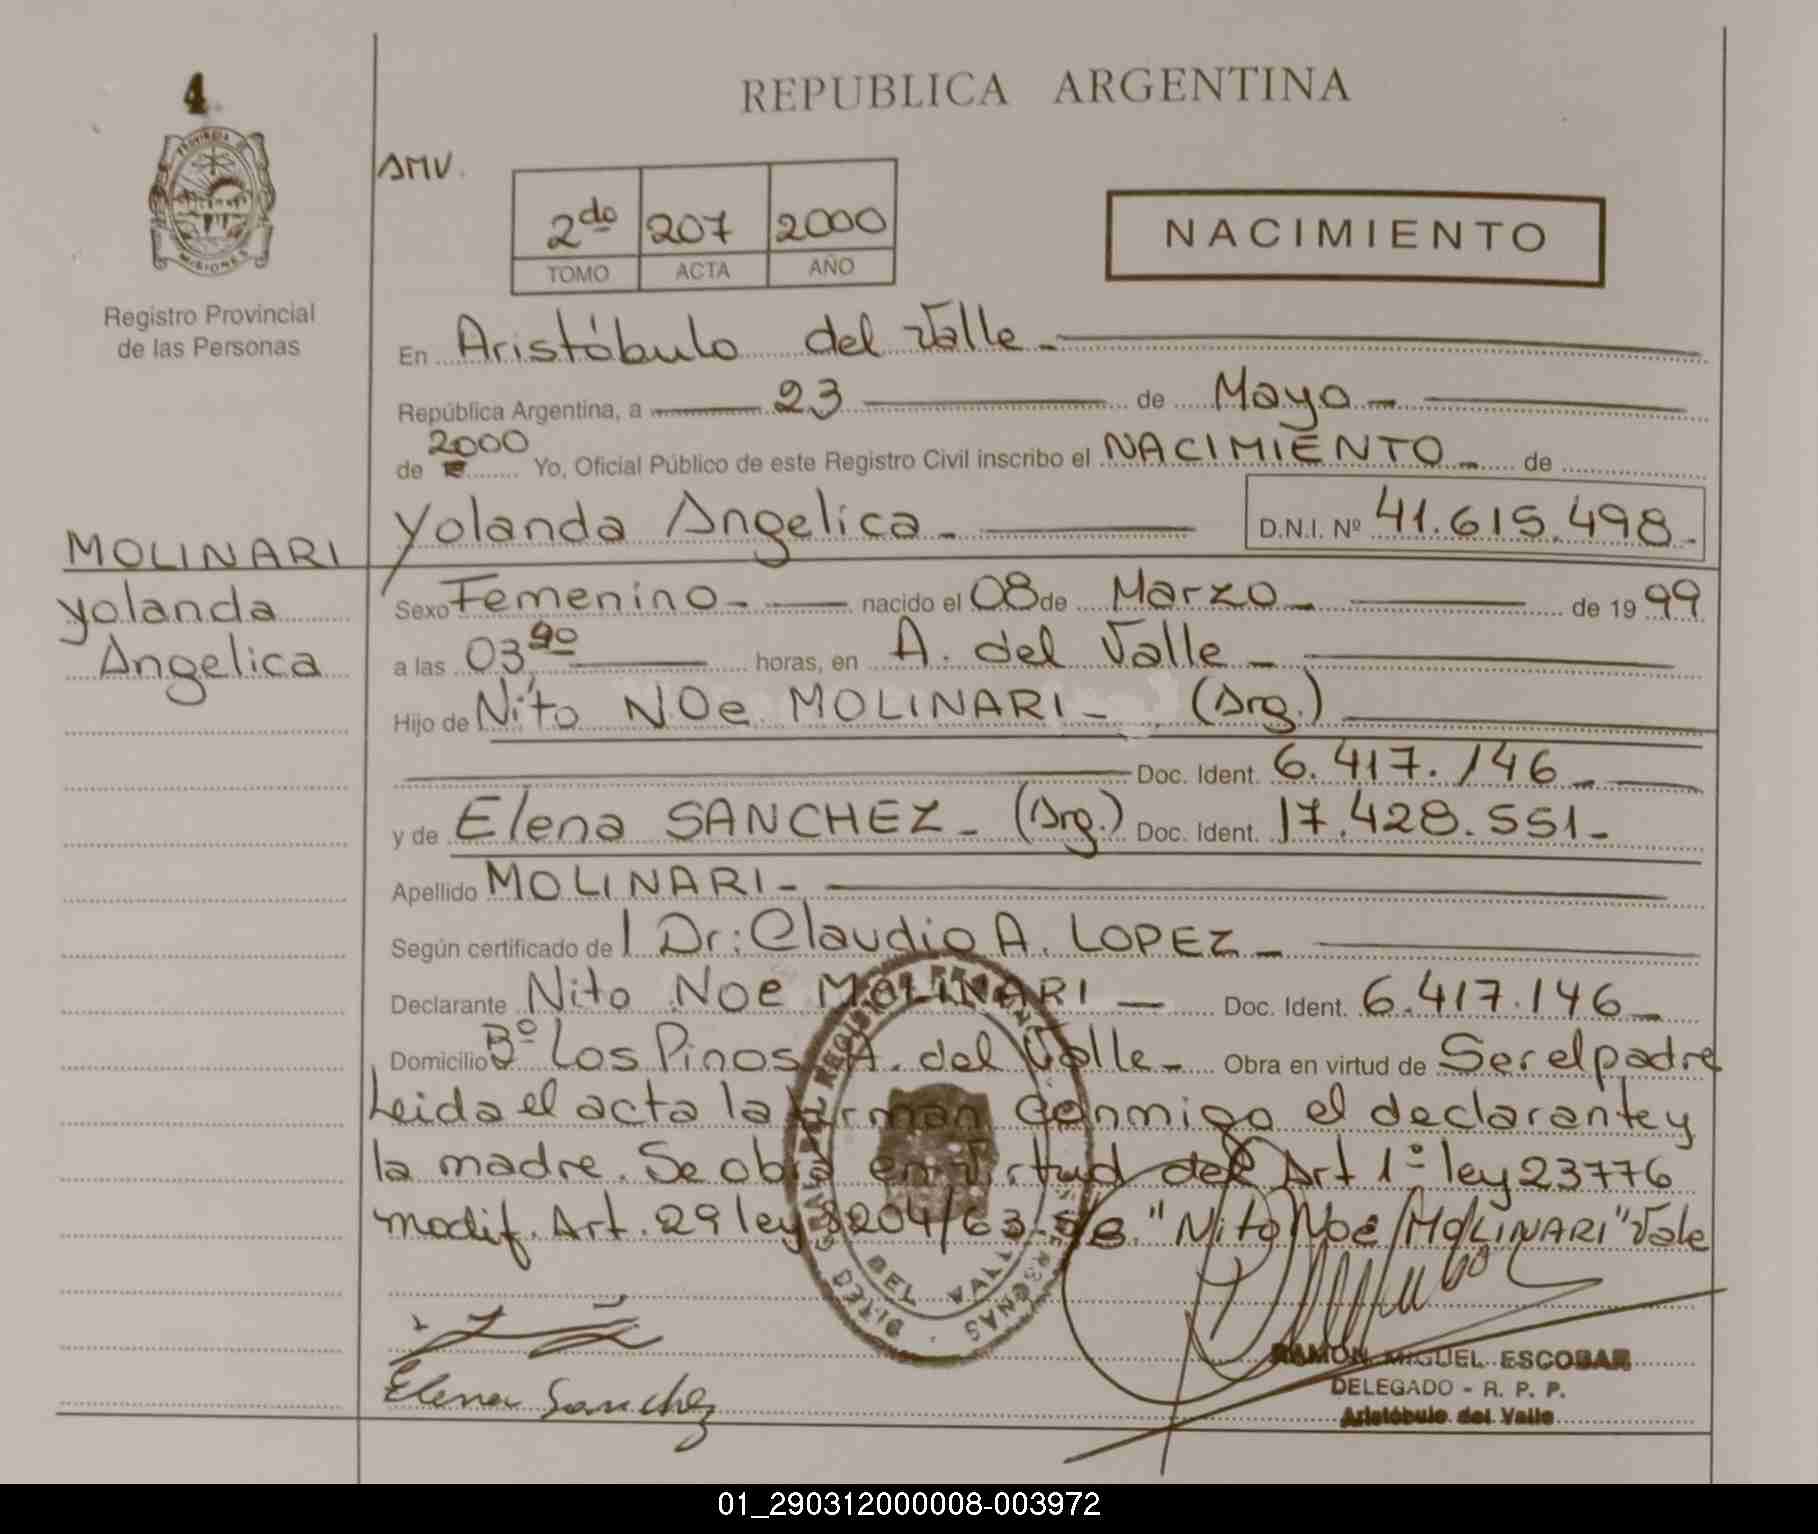 4
PROVINCIA DE
MISIONES
Registro Provincial
de las Personas
REPUBLICA ARGENTINA
AMV.
2do 207 2000
TOMO ACTA AÑO
NACIMIENTO
En Aristóbulo del Valle -
República Argentina, a 23 de Mayo -
de 2000 Yo, Oficial Público de este Registro Civil inscribo el NACIMIENTO - de
Yolanda Angelica - D.N.I. Nº 41.615.498-
MOLINARI
Yolanda
Angelica
Sexo Femenino - nacido el 08 de Marzo - de 19 99
a las 03 horas, en A. del Valle -
Hijo de Nito NOe MOLINARI - (Arg.)
Doc. Ident. 6.417.146 -
y de Elena SANCHEZ - (Arg.) Doc. Ident. 17.428.551-
Apellido MOLINARI -
Según certificado de Dr: Claudio A. LOPEZ -
Declarante Nito Noe MOLINARI - Doc. Ident. 6.417.146 -
Domicilio Bº Los Pinos A. del Valle - Obra en virtud de Ser el padre
Leida el acta la firman conmigo el declarante y
la madre. Se obra en virtud del Art 1º ley 23776
modif. Art. 29 ley 8204/63 S/B. "Nito Noe MOLINARI" Vale
Elena Sanchez
RAMON MIGUEL ESCOBAR
DELEGADO - R. P. P.
Aristóbulo del Valle
01_290312000008-003972